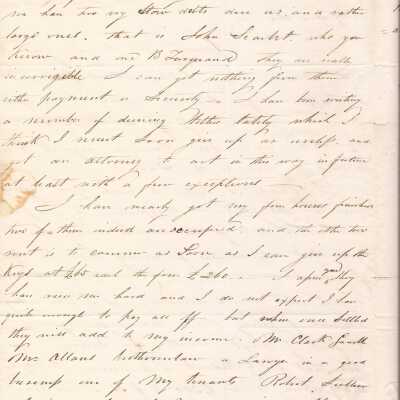 we have two very slow debts due us, and rather
large ones, that is John Scarlet who you
know and one B Farquand they are both
incorrigible I can get nothing from them
either payment or security - I have been writing
a number of dunning letters lately which I
think I must soon give up as useless, and
get an attorney to act in this way in future
at least with a few exceptions -
I have nearly got my four houses finished
two of them indeed are occupied, and the other two
rent is to commence as soon as I can give up the
Keys at £65 each the four £260. - I
have run me hard and I do not expect I have
quite enough to pay all off but when once settled
they will add to my income. Mr. Clark
Mrs Allans brotherinlaw a Lawyer in a good
business one of My tenants Robert